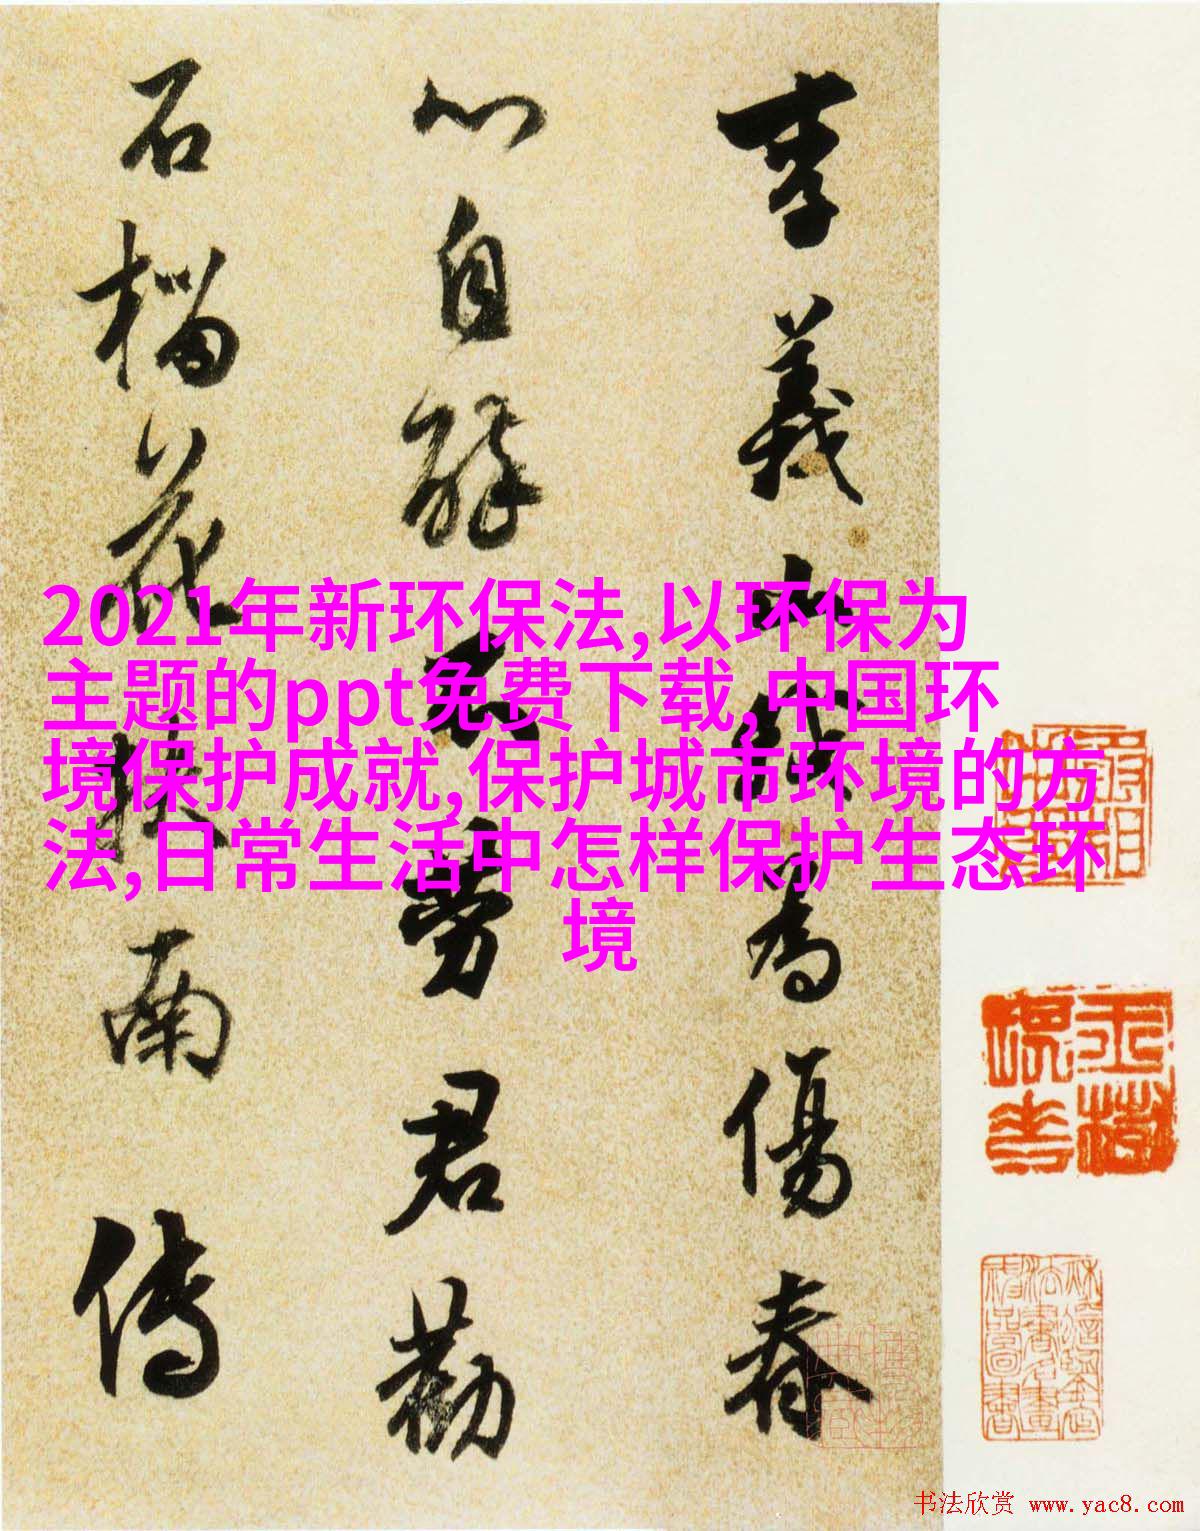 李義山我為傷春
心自醉不勞君勸
石榴花南傳
2021年新环保法,以环保为
主题的ppt免费下载,中国环
境保护成就,保护城市环境的方
法,日常生活中怎样保护生态环
境
书法欣赏 www.yac8.com